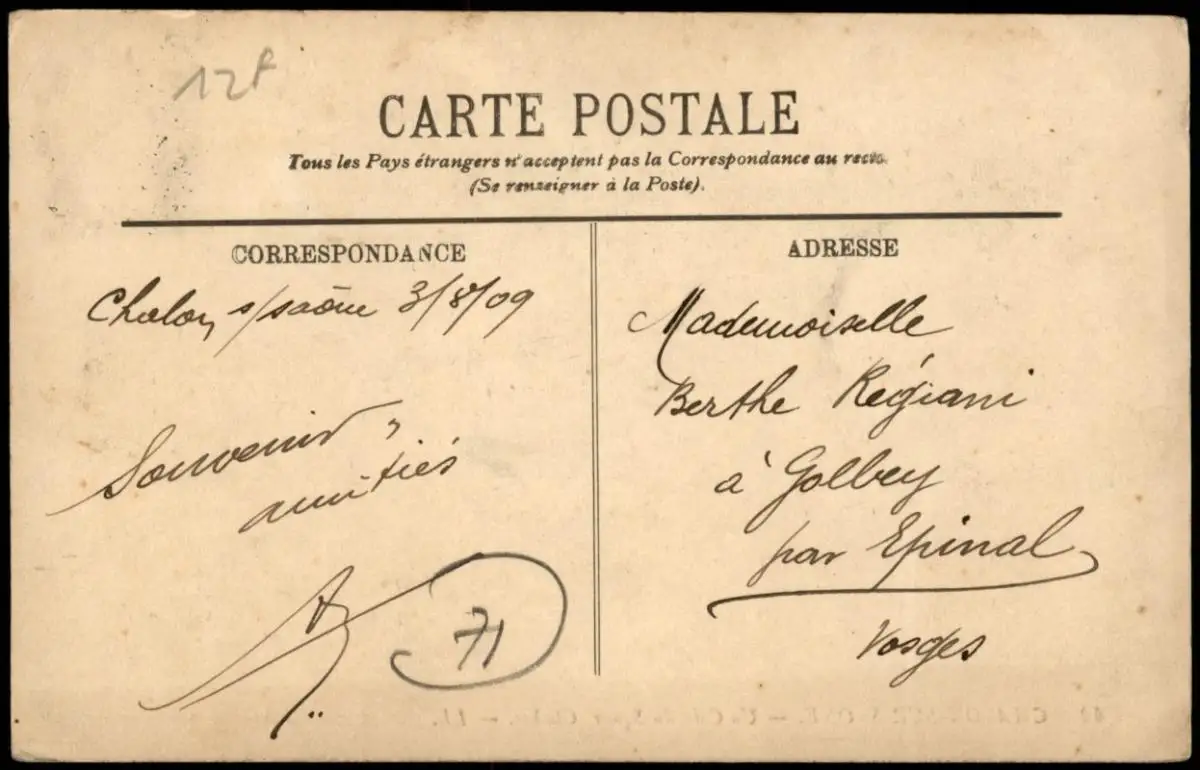 12f
CARTE POSTALE
Tous les Pays étrangers n'acceptent pas la Correspondance au recto.
(Se renseigner à la Poste).
CORRESPONDANCE
Chalon s/saône 3/8/09
Souvenir,
amitiés
71
ADRESSE
Mademoiselle
Berthe Régiani
à Golbey
par Epinal
Vosges